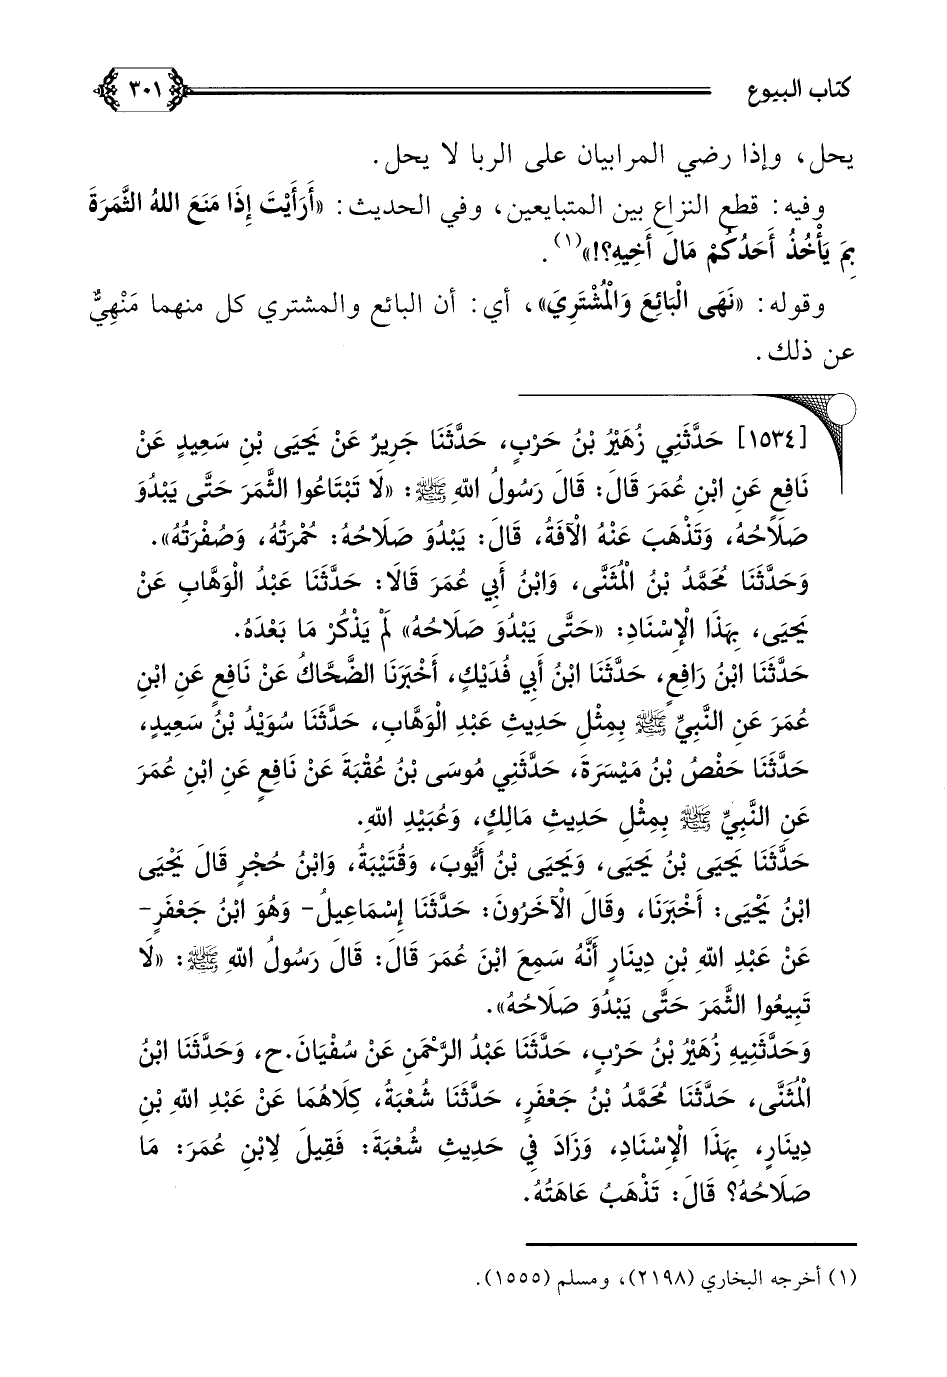 كتاب البيوع
٣٠١
يحل، وإذا رضي المرابيان على الربا لا يحل.
وفيه: قطع النزاع بين المتبايعين، وفي الحديث: «أَرَأَيْتَ إِذَا مَنَعَ اللهُ الثَّمَرَةَ
بِمَ يَأْخُذُ أَحَدُكُمْ مَالَ أَخِيهِ؟!»(١).
وقوله: «نَهَى الْبَائِعَ وَالْمُشْتَرِيَ»، أي: أن البائع والمشتري كل منهما مَنْهِيٌّ
عن ذلك.
[١٥٣٤] حَدَّثَنِي زُهَيْرُ بْنُ حَرْبٍ، حَدَّثَنَا جَرِيرٌ عَنْ يَحْيَى بْنِ سَعِيدٍ عَنْ
نَافِعٍ عَنِ ابْنِ عُمَرَ قَالَ: قَالَ رَسُولُ اللهِ ﷺ: «لَا تَبْتَاعُوا الثَّمَرَ حَتَّى يَبْدُوَ
صَلَاحُهُ، وَتَذْهَبَ عَنْهُ الْآفَةُ، قَالَ: يَبْدُوَ صَلَاحُهُ: حُمْرَتُهُ، وَصُفْرَتُهُ».
وَحَدَّثَنَا مُحَمَّدُ بْنُ الْمُثَنَّى، وَابْنُ أَبِي عُمَرَ قَالَا: حَدَّثَنَا عَبْدُ الْوَهَّابِ عَنْ
يَحْيَى، بِهَذَا الْإِسْنَادِ: «حَتَّى يَبْدُوَ صَلَاحُهُ» لَمْ يَذْكُرْ مَا بَعْدَهُ.
حَدَّثَنَا ابْنُ رَافِعٍ، حَدَّثَنَا ابْنُ أَبِي فُدَيْكٍ، أَخْبَرَنَا الضَّحَّاكُ عَنْ نَافِعٍ عَنِ ابْنِ
عُمَرَ عَنِ النَّبِيِّ ﷺ بِمِثْلِ حَدِيثِ عَبْدِ الْوَهَّابِ، حَدَّثَنَا سُوَيْدُ بْنُ سَعِيدٍ،
حَدَّثَنَا حَفْصُ بْنُ مَيْسَرَةَ، حَدَّثَنِي مُوسَى بْنُ عُقْبَةَ عَنْ نَافِعٍ عَنِ ابْنِ عُمَرَ
عَنِ النَّبِيِّ ﷺ بِمِثْلِ حَدِيثِ مَالِكٍ، وَعُبَيْدِ اللهِ.
حَدَّثَنَا يَحْيَى بْنُ يَحْيَى، وَيَحْيَى بْنُ أَيُّوبَ، وَقُتَيْبَةُ، وَابْنُ حُجْرٍ قَالَ يَحْيَى
ابْنُ يَحْيَى: أَخْبَرَنَا، وقَالَ الْآخَرُونَ: حَدَّثَنَا إِسْمَاعِيلُ- وَهُوَ ابْنُ جَعْفَرٍ-
عَنْ عَبْدِ اللهِ بْنِ دِينَارٍ أَنَّهُ سَمِعَ ابْنَ عُمَرَ قَالَ: قَالَ رَسُولُ اللهِ ﷺ: «لَا
تَبِيعُوا الثَّمَرَ حَتَّى يَبْدُوَ صَلَاحُهُ».
وَحَدَّثَنِيهِ زُهَيْرُ بْنُ حَرْبٍ، حَدَّثَنَا عَبْدُ الرَّحْمَنِ عَنْ سُفْيَانَ.ح، وَحَدَّثَنَا ابْنُ
الْمُثَنَّى، حَدَّثَنَا مُحَمَّدُ بْنُ جَعْفَرٍ، حَدَّثَنَا شُعْبَةُ، كِلَاهُمَا عَنْ عَبْدِ اللهِ بْنِ
دِينَارٍ، بِهَذَا الْإِسْنَادِ، وَزَادَ فِي حَدِيثِ شُعْبَةَ: فَقِيلَ لِابْنِ عُمَرَ: مَا
صَلَاحُهُ؟ قَالَ: تَذْهَبُ عَاهَتُهُ.
(١) أخرجه البخاري (٢١٩٨)، ومسلم (١٥٥٥).